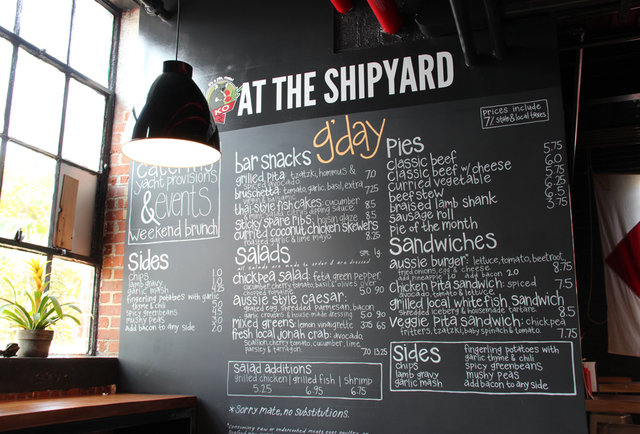 KO
AT THE SHIPYARD
prices include
7% state & local taxes
g'day
catering
yacht provisions
& events
weekend brunch
Sides
chips 1.0
lamb gravy
garlic mash
fingerling potatoes with garlic
thyme & chili
spicy greenbeans
mushy peas
add bacon to any side 2.0
bar snacks
grilled pita: tzatziki, hommus & 7.0
bruschetta: tomato, garlic, basil, extra 7.25
thai style fish cakes: cucumber
dipping sauce 8.5
sticky spare ribs: hoisin glaze 8.5
curried coconut chicken skewers
roasted garlic & lime mayo 8.25
Salads sm. lg.
all salads are made to order & are dressed
chickpea salad: feta, green pepper
cucumber, cherry tomato, basil & olives over
chopped romaine 5.0 9.0
aussie style caesar:
grated egg, shredded parmesan, bacon
garlic croutons & house-made dressing 5.0 9.0
mixed greens: lemon vinaigrette 3.75 6.5
fresh local jonah crab: avocado,
scallion, cherry tomato, cucumber, lime,
parsley & tarragon 7.0 13.25
salad additions
grilled chicken | grilled fish | shrimp
5.25 6.95 6.75
*Sorry mate, no substitutions.
Pies
classic beef 5.75
classic beef w/ cheese 6.0
curried vegetable
beef stew
braised lamb shank
sausage roll 3.75
pie of the month
Sandwiches
aussie burger: lettuce, tomato, beetroot,
fried onions, egg & cheese
add pineapple add bacon 2.0 8.75
chicken pita sandwich: spiced
avocado, tomato & lettuce 7.5
grilled local whitefish sandwich
shredded iceberg & housemade tartare 8.5
veggie pita sandwich: chickpea
fritters, tzatziki, baby spinach & tomato 7.75
Sides
chips
lamb gravy
garlic mash
fingerling potatoes with
garlic thyme & chili
spicy greenbeans
mushy peas
add bacon to any side